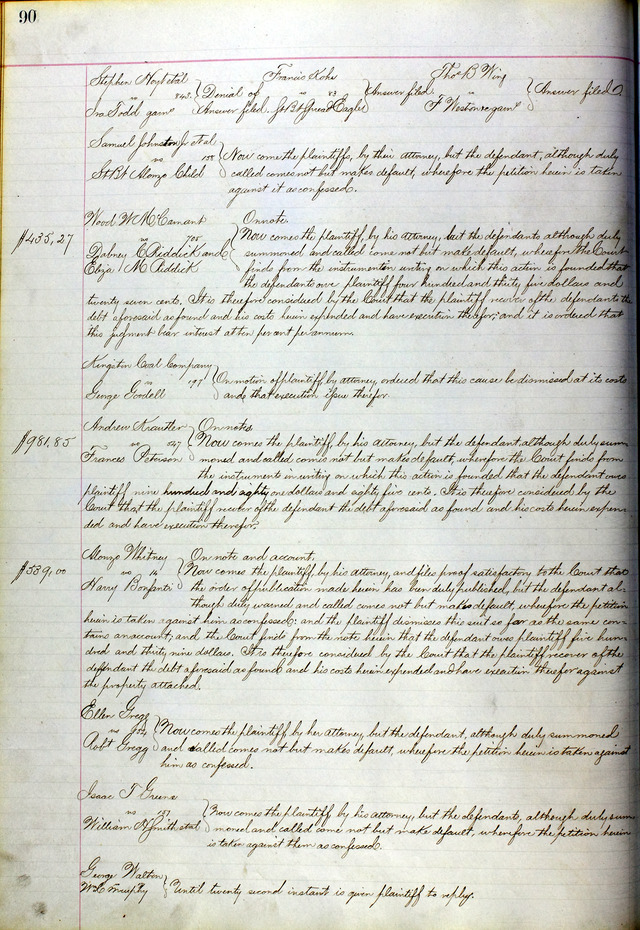 90
Stephen Hoyt et al Francis Kohs Thos B Wing
vs 843 Denial of vs 83 Answer filed. vs Answer filed.
Jno Todd garn Answer filed. St Bt Great Eagle F Weston garn
Samuel Johnston Jr et al
vs 158 Now come the plaintiffs, by their attorney, but the defendant, although duly
St Bt Alonzo Child called comes not but makes default, wherefore the petition herein is taken
against it as confessed.
Wood W McCamant On note.
vs 705 Now comes the plaintiff, by his attorney, but the defendants although duly
$435,27 Dabney C Riddick and summoned and called come not but make default, wherefore the Court
Eliza M Riddick finds from the instrument in writing on which this action is founded that
the defendants owe plaintiff four hundred and thirty five dollars and
twenty seven cents. It is therefore considered by the Court that the plaintiff recover of the defendants the
debt aforesaid as found and his costs herein expended and have execution therefor; and it is ordered that
this judgment bear interest at ten per cent per annum.
Kingston Coal Company
vs 197 On motion of plaintiff by attorney, ordered that this cause be dismissed at its costs
George Goodell and that execution issue therefor.
Andrew Krautler On notes
vs 547 Now comes the plaintiff, by his attorney, but the defendant, although duly sum-
$981,85 Frances Peterson moned and called comes not but makes default, wherefore the Court finds from
the instruments in writing on which this action is founded that the defendant owes
plaintiff nine hundred and eighty one dollars and eighty five cents. It is therefore considered by the
Court that the plaintiff recover of the defendant the debt aforesaid as found and his costs herein expen-
ded and have execution therefor.
Alonzo Whitney On note and account.
vs 14 Now comes the plaintiff, by his attorney, and files proof satisfactory to the Court that
$539,00 Harry Bonfanti the order of publication made herein has been duly published, but the defendant al-
though duly warned and called comes not but makes default, wherefore the petition
herein is taken against him as confessed: and the plaintiff dismisses this suit so far as the same con-
tains an account, and the Court finds from the note herein that the defendant owes plaintiff five hun-
dred and thirty nine dollars. It is therefore considered by the Court that the plaintiff recover of the
defendant the debt aforesaid as found and his costs herein expended and have execution therefor against
the property attached.
Ellen Gregg
vs Now comes the plaintiff by her attorney, but the defendant, although duly summoned
Robt Gregg and called comes not but makes default, wherefore the petition herein is taken against
him as confessed.
Isaac T Greene
vs 137 Now comes the plaintiff, by his attorney, but the defendants, although duly sum-
William H Smith et al moned and called come not but make default, wherefore the petition herein
is taken against them as confessed.
George Walton
Wm L Murphy Until twenty second instant is given plaintiff to reply.